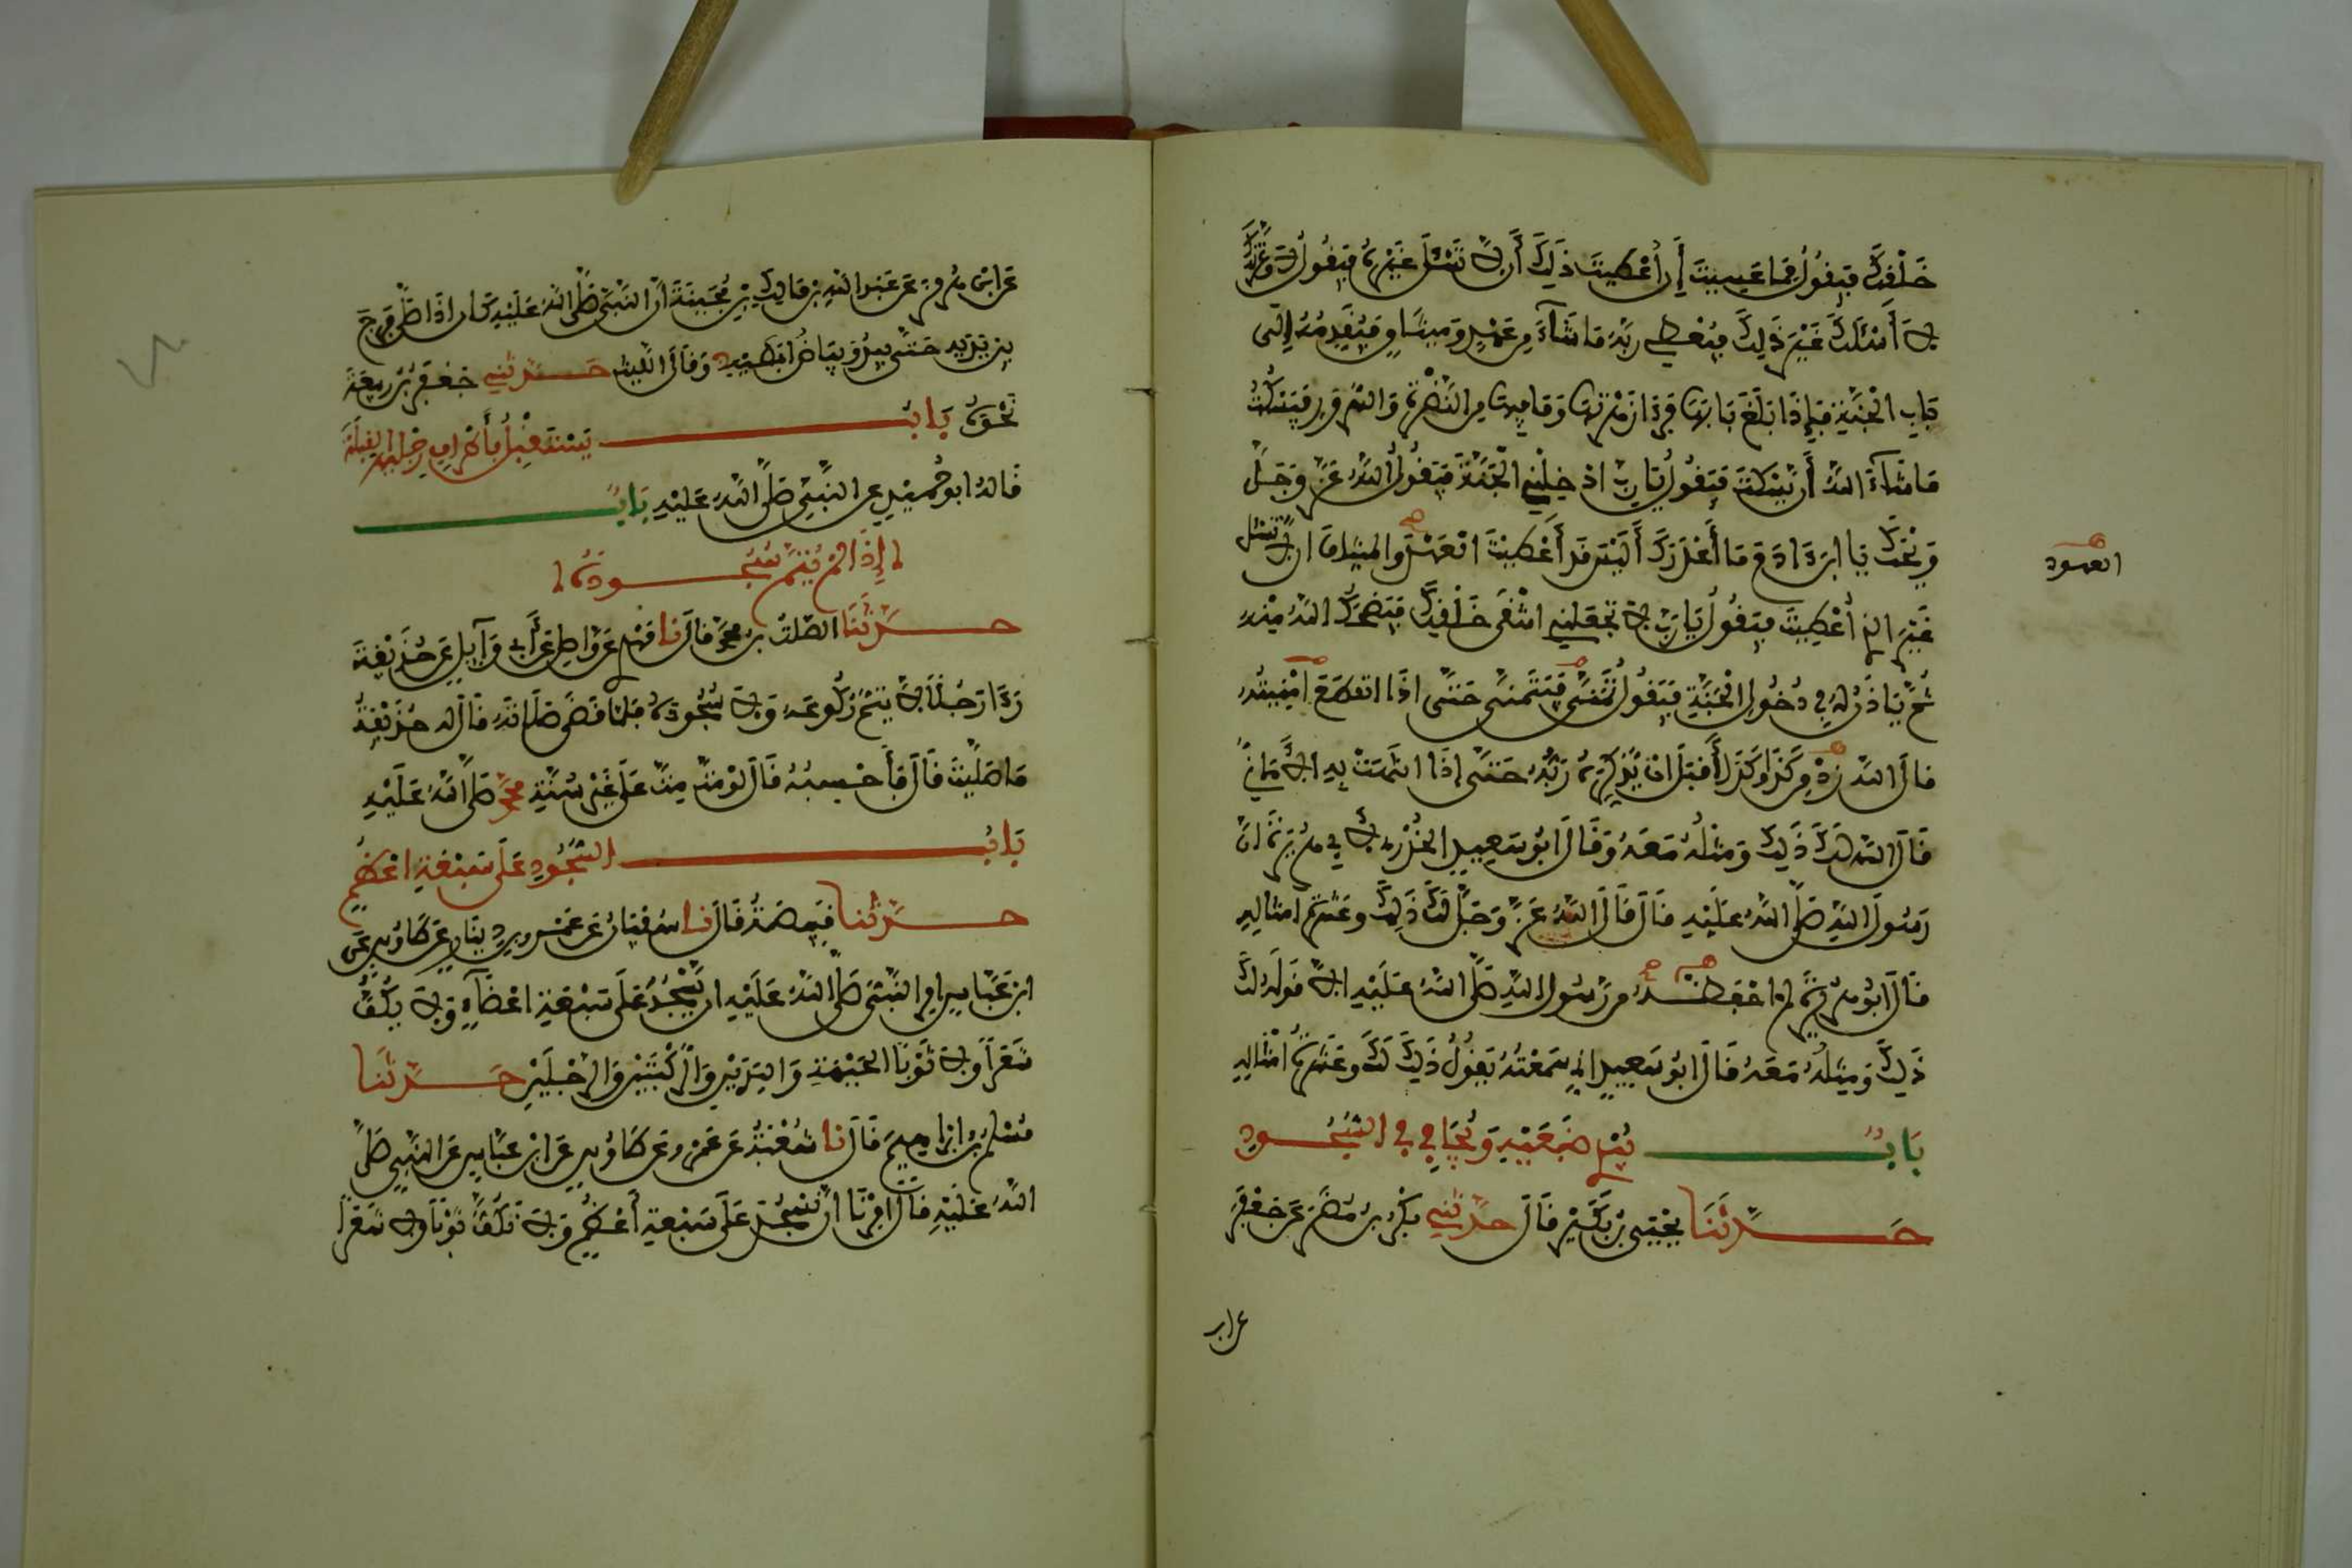 خَلْفِكَ فيقولُ فما عسيتَ إن أُعطيتَ ذَلكَ أن لا تسْئلَ غيرهُ فيقولُ لا وعزتك
لا أسْئلكَ غيرَ ذَلِكَ فيُعطي ربَّهُ ما شَآءَ من عهْدٍ وميثَاقٍ فيُقدمُهُ إلى
بَابِ الْجَنَّةِ فإِذَا بَلَغَ بَابَهَا فرءا زهْرتهَا وما فيها من النَّضْرةِ والسُّرورِ فيسْكُتُ
ما شَآءَ اللهُ أن يسْكتَ فيَقُولُ يَا ربِّ ادْخِلْني الْجَنَّةَ فيَقُولُ اللهُ عزَّ وجَلَّ
وَيْحَكَ يا ابنَ ءادمَ ما أَغْدَرَكَ ألَيْسَ قد أعْطيْتَ العهْدَ والميثاقَ ان لا تسْئل
العهود
غَيْرَ الذي أُعْطِيتَ فيقُولُ يَا ربِّ لا تجعلني اشْقَى خَلْقِكَ فيَضحَكُ اللهُ مِنْهُ
ثُمَّ يَاذَنُ لهُ في دُخُولِ الْجَنَّةِ فيَقُولُ تَمَنَّ فيَتَمنى حتَّى اذَا انقطعَ امْنِيتُهُ
قالَ اللهُ زِدْ من كَذَا وكَذَا أَقْبَلَ يُذَكِّرُهُ ربُّهُ حتَّى إذَا انتهَتْ به الأَمَانِيُّ
قَالَ اللهُ لَكَ ذَلِكَ وَمثلُهُ مَعَهُ وَقَالَ ابُو سَعِيدٍ الخُدْريُّ لأبي هريْرةَ انَّ
رسُولَ اللهِ صَلَّى اللهُ علَيْهِ قَالَ قَالَ اللهُ عزَّ وَجَلَّ لكَ ذَلِكَ وعَشرةُ امثالِهِ
قَالَ ابُو هريرةَ لم احْفظْهُ من رسُولِ اللهِ صَلَّى اللهُ عَلَيْهِ الاَّ قولَهُ لكَ
ذَلِكَ وَمِثلُهُ مَعَهُ قَالَ ابُو سَعِيدٍ اني سَمعْتُهُ يَقُولُ ذَلِكَ لَكَ وعَشرةُ امْثَالِهِ
بَابٌ يُبْدِي ضَبْعَيْهِ وَيُجَافِي فِي السُّجُودِ
حَدَّثَنَا يحْيَى بْنُ بُكَيْرٍ قَالَ حدَّثَنِي بكْرُ بنُ مُضَرَ عَن جَعْفَرَ
عن ابن
عَن ابْنِ هُرمُزَ عَن عَبْدِ اللهِ بن مَالِكٍ بْنِ بُحَيْنَةَ أنَّ النَّبيَّ صَلَّى اللهُ عَلَيْهِ كان اذَا صَلَّى فَرَّجَ
بين يَدَيهِ حَتَّى يَبدُوَ بَيَاضُ ابْطَيْهِ وَقَالَ اللَّيثُ حَدَّثَنِي جَعْفَرُ بْنُ رَبِيعَةَ
نَحْوَهُ بَابُ يَسْتَقْبِلُ بأَطْرافِ رِجْلَيْهِ القِبْلَةَ
قَالهُ ابو حُمَيْدٍ عن النَّبِيّ صَلَّى اللهُ عَلَيْهِ بَابٌ
إذَا لمْ يُتِمَّ سُجُودَهُ
حَدَّثَنَا الصَّلْتُ بنُ مُحَمَّدٍ قَالَ نا مَهْدِي عَن وَّاصِلٍ عَن أَبِي وَآئِلٍ عَن حُذَيْفَةَ
رَءَا رَجُلًا لاَ يُتِمُّ رُكُوعَهُ وَلاَ سُجُودَهُ فَلمَّا قَضَى صَلاَتَهُ قَالَ لَهُ حُذَيْفَةُ
مَا صَلَّيْتَ قَالَ وأَحْسِبُهُ قَالَ لَوْ مُتَّ مِتَّ عَلَى غَيْرِ سُنَّةِ مُحَمَّدٍ صَلَّى اللهُ عَلَيْهِ
بَابُ السُّجُودِ عَلَى سَبْعَةِ اعْظُمٍ
حَدَّثَنا قَبِيصَةُ قَالَ نا سُفْيَانُ عَن عَمْرِو بن دِينَارٍ عَن طَاوُسٍ عَن
ابن عَبَّاسٍ امِرَ النَّبيُّ صَلَّى اللهُ عَلَيْهِ ان يَسْجُدَ عَلَى سَبْعَةِ اعْضَآءٍ وَلاَ يَكُفَّ
شَعَراً وَلاَ ثَوْبًا الجَبْهَةِ وَاليَدَيْنِ وَالرُّكْبَتَيْنِ وَالرِّجْلَيْنِ حَدَّثَنَا
مُسْلِمُ بْنُ ابْرَاهِيمَ قَالَ نا شُعْبَةُ عَن عَمْرٍو عَن طَاوُسٍ عَن ابْنِ عَبَّاسٍ عَن النَّبِيِّ صَلَّى
اللهُ عَلَيْهِ قَالَ امِرْنَا انْ نَسْجُدَ عَلَى سَبْعَةِ أَعْظُمٍ وَلاَ نَكُفَّ ثَوْبًا وَلاَ شَعَرًا